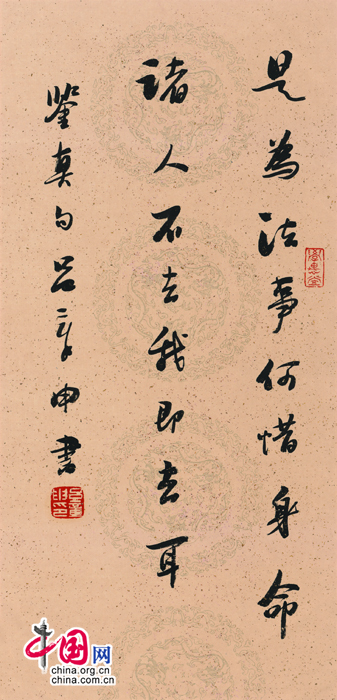 是為法事何惜身命
諸人不去我即去耳
鑒真句呂章申書
中国网
china.org.cn
china.com.cn